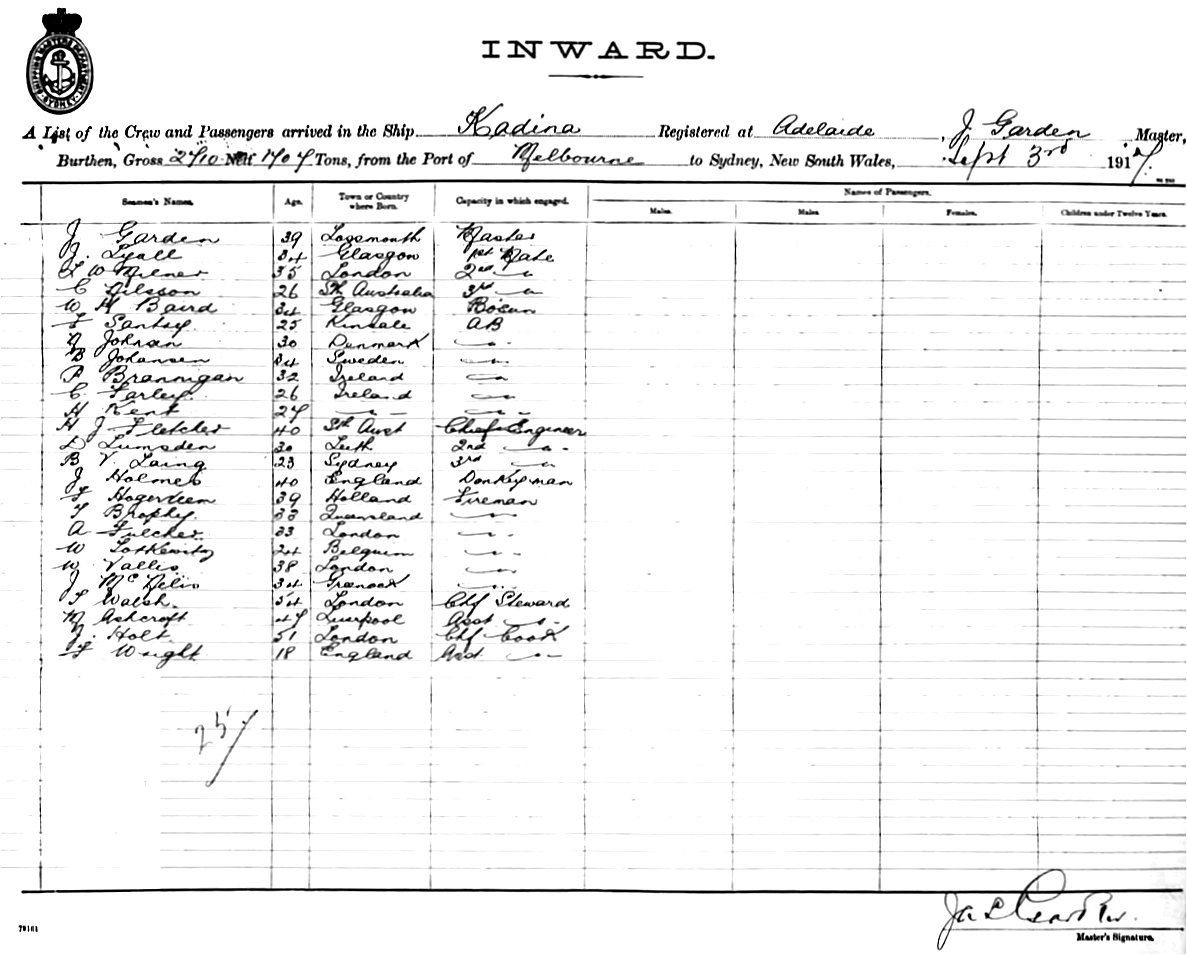 SHIPPING MASTERS DEPARTMENT SYDNEY
INWARD.
A List of the Crew and Passengers arrived in the Ship Kadina Registered at Adelaide, J Garden Master,
Burthen, Gross 2710 Nett 1707 Tons, from the Port of Melbourne to Sydney, New South Wales, Sept 3rd 1917.
Seamen's Names. Age. Town or Country where Born. Capacity in which engaged. Names of Passengers.
Males. Males. Females. Children under Twelve Years.
J Garden 39 Lossmouth Master
Lyall 34 Glasgow 1st Mate
W Milner 35 London 2nd "
C Nilsson 26 Sth Australia 3rd "
W H Baird 34 Glasgow Bosun
25 Kinsale AB
30 Denmark "
B Johansen 34 Sweden "
P Brannigan 32 Ireland "
C Farley 26 Ireland "
H Kent 27 " "
H J Fletcher 40 Sth Aust Chief Engineer
D Lumsden 30 Leith 2nd "
B V. Laing 23 Sydney 3rd "
J Holmes 40 England Donkeyman
39 Holland Fireman
T Brophy 33 Queensland "
A Fulcher 33 London "
W 24 Belguim "
W Vallis 38 London "
J 34 Greenock "
Walsh. 54 London Chf Steward
M Ashcroft 47 Liverpool Asst "
J. Holt 51 London Chf Cook
F Wright 18 England Asst "
25
79161
Master's Signature.